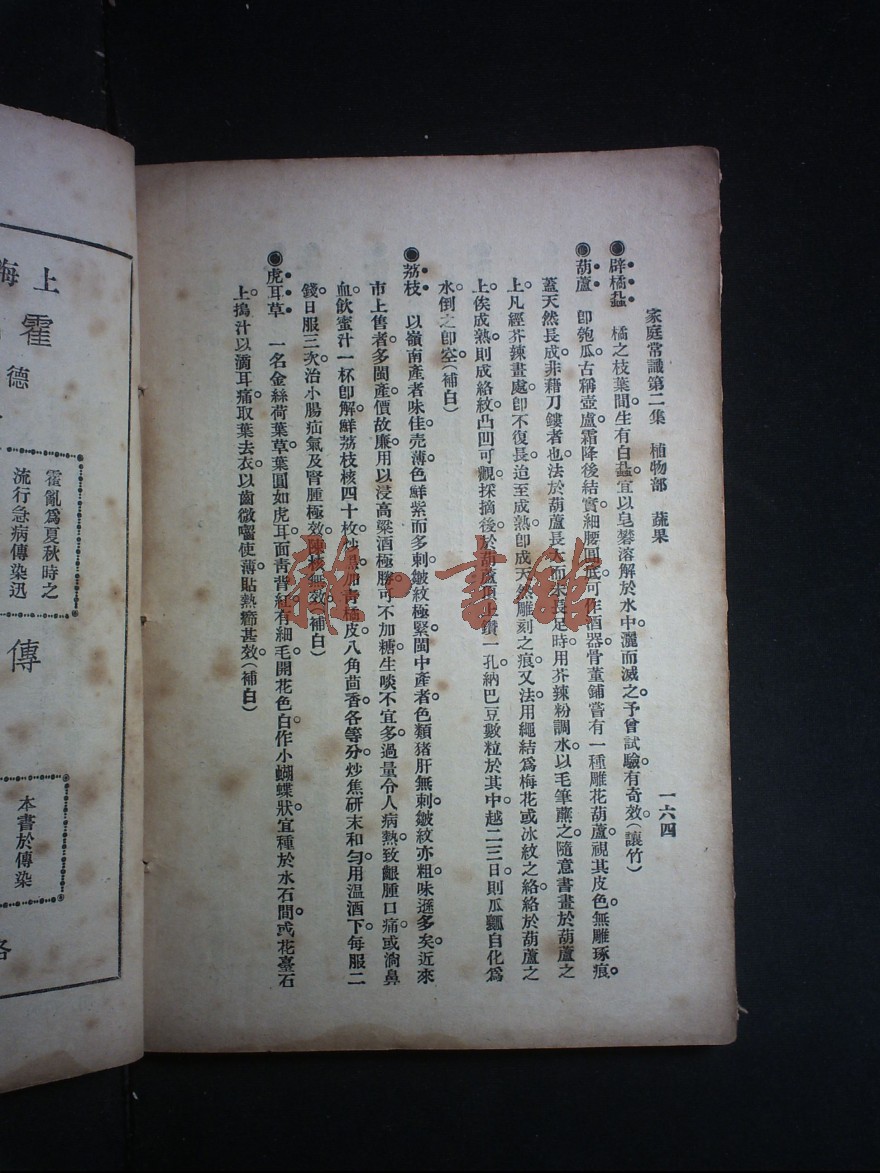 家庭常識第二集　植物部　蔬果　一六四
●辟橘蝨　橘之枝葉間生有白蝨宜以皂礬溶解於水中灑而滅之。予曾試驗有奇效。(讓竹)
●葫蘆　卽匏瓜古稱壺盧霜降後結實細腰圓底可作酒器骨董鋪嘗有一種雕花葫蘆視其皮色無雕琢痕。
蓋天然長成非藉刀鏤者也。法於葫蘆長大而未長足時用芥辣粉調水以毛筆蘸之隨意書畫於葫蘆之
上。凡經芥辣畫處卽不復長迨至成熟卽成天然雕刻之痕。又法用繩結爲梅花或冰紋之絡絡於葫蘆之
上。俟成熟則成絡紋凸凹可觀採摘後於葫蘆頂上鑽一孔納巴豆數粒於其中。越二三日則瓜瓤自化爲
水。倒之卽空。(補白)
●荔枝　以嶺南產者味佳。壳薄色鮮紫而多刺皺紋極緊閩中產者色類猪肝無刺皺紋亦粗味遜多矣近來
市上售者。多閩產價故廉。用以浸高粱酒極勝可不加糖。生啖不宜多過量令人病熱致齦腫口痛。或淌鼻
血。飲蜜汁一杯卽解。鮮荔枝核四十枚炒 加青橘皮八角茴香各等分。炒焦硏末和勻。用温酒下。每服二
錢。日服三次。治小腸疝氣及腎腫極效。陳核無效。(補白)
●虎耳草　一名金絲荷葉草。葉圓如虎耳。面青背紅。有細毛。開花色白。作小蝴蝶狀宜種於水石間。或花臺石
上。搗汁以滴耳痛。取葉去衣。以齒微嚙使薄貼熱癤甚效。(補白)
上海
霍
德
霍亂爲夏秋時之
流行急病傳染迅
傳
本書於傳染
各
雜·書館